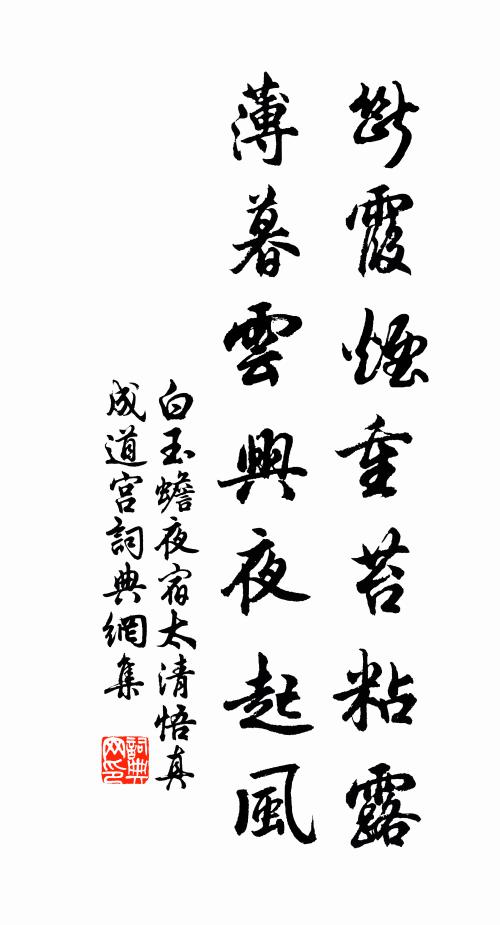 斷霞煙重苔粘露
薄暮雲興夜起風
白玉蟾夜宿太清悟真
成道宮詞典網集
詞典
网印